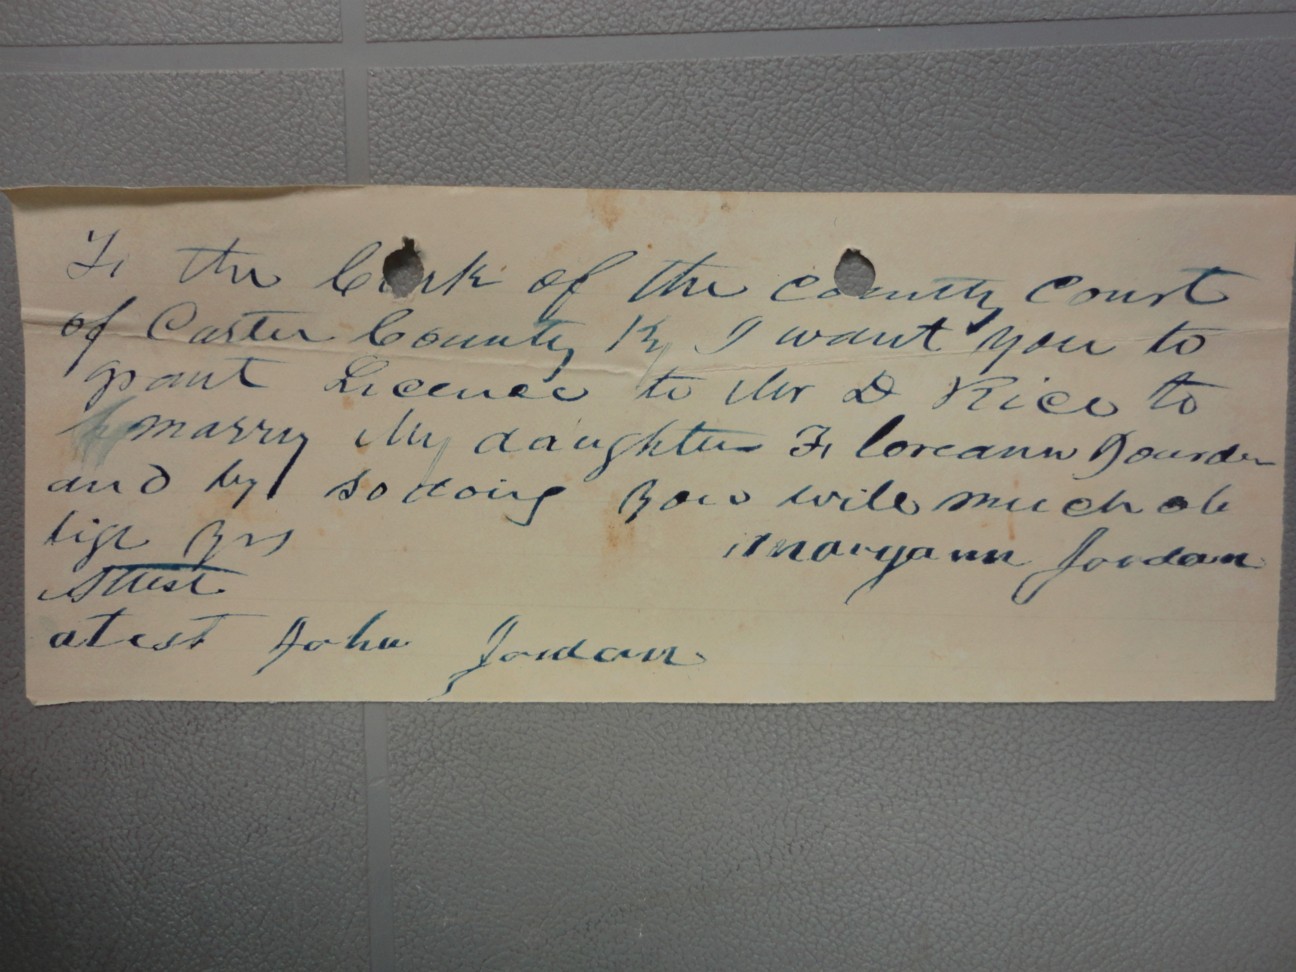 To the Clerk of the county court
of Carter County Ky I want you to
grant Licence to Mr D Rice to
marry My daughter Floreann Jourden
and by so doing you will much ob
lige yrs Maryann Jordan
Attest
atest John Jordan